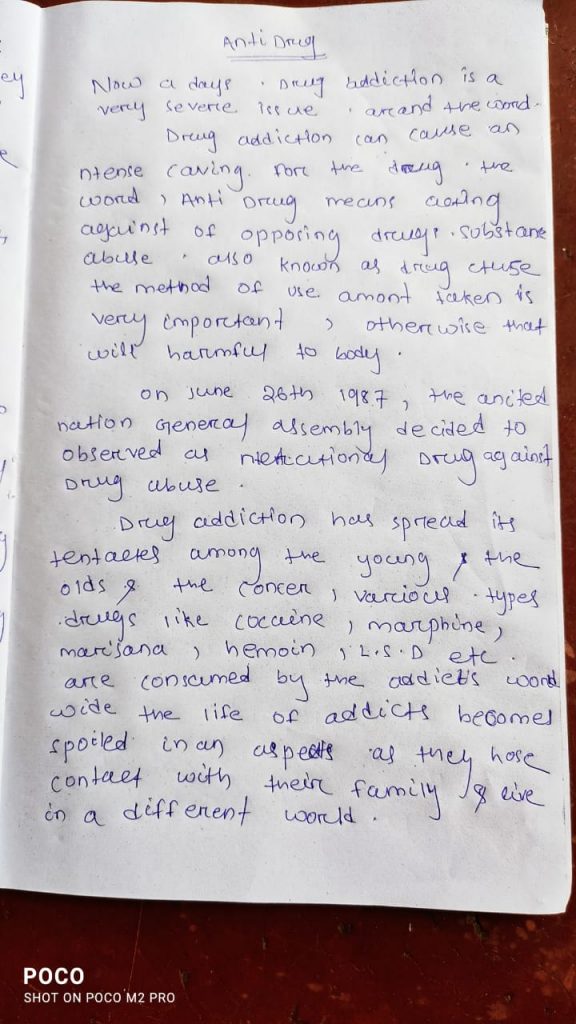 Anti Drug
Now a days . Drug addiction is a
very severe issue . arcand the word.
Drug addiction can cause an
ntense caving. For the drug . the
word , Anti Drug means acting
against of opposing drugs. substane
abuse . also known as drug ctuse
the method of use amont taken is
very important , otherwise that
will harmful to body .
on june 26th 1987 , the anited
nation General assembly decided to
observed as Drug against
Drug abuse .
Drug addiction has spread its
among the young & the
olds & the concer , various . types
.drugs like cocaine , marphine ,
marisana , hemoin , L.S.D etc .
are consumed by the addicts word
wide the life of addicts becomes
spoiled in an aspects as they hose
contact with their family & live
in a different world .
ey
POCO
SHOT ON POCO M2 PRO